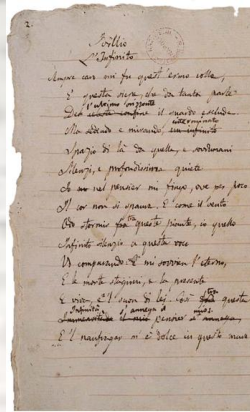 2.
Idillio
L'Infinito
Sempre caro mi fu quest'ermo colle,
E questa siepe, che da tanta parte
l'ultimo orizzonte
Del celeste confine il guardo esclude.
interminato
Ma sedendo e mirando, un infinito
Spazio di là da quella, e sovrumani
Silenzi, e profondissima quiete
Io nel pensier mi fingo, ove per poco
Il cor non si spaura. E come il vento
Odo stormir tra queste piante, io quello
Infinito silenzio a questa voce
Vo comparando. E mi sovvien l'eterno,
E le morte stagioni, e la presente
E viva, e 'l suon di lei. Così tra questa
Infinità s'annega il mio
Immensitade il mio pensier s'annega,
E 'l naufragar m'è dolce in questo mare.